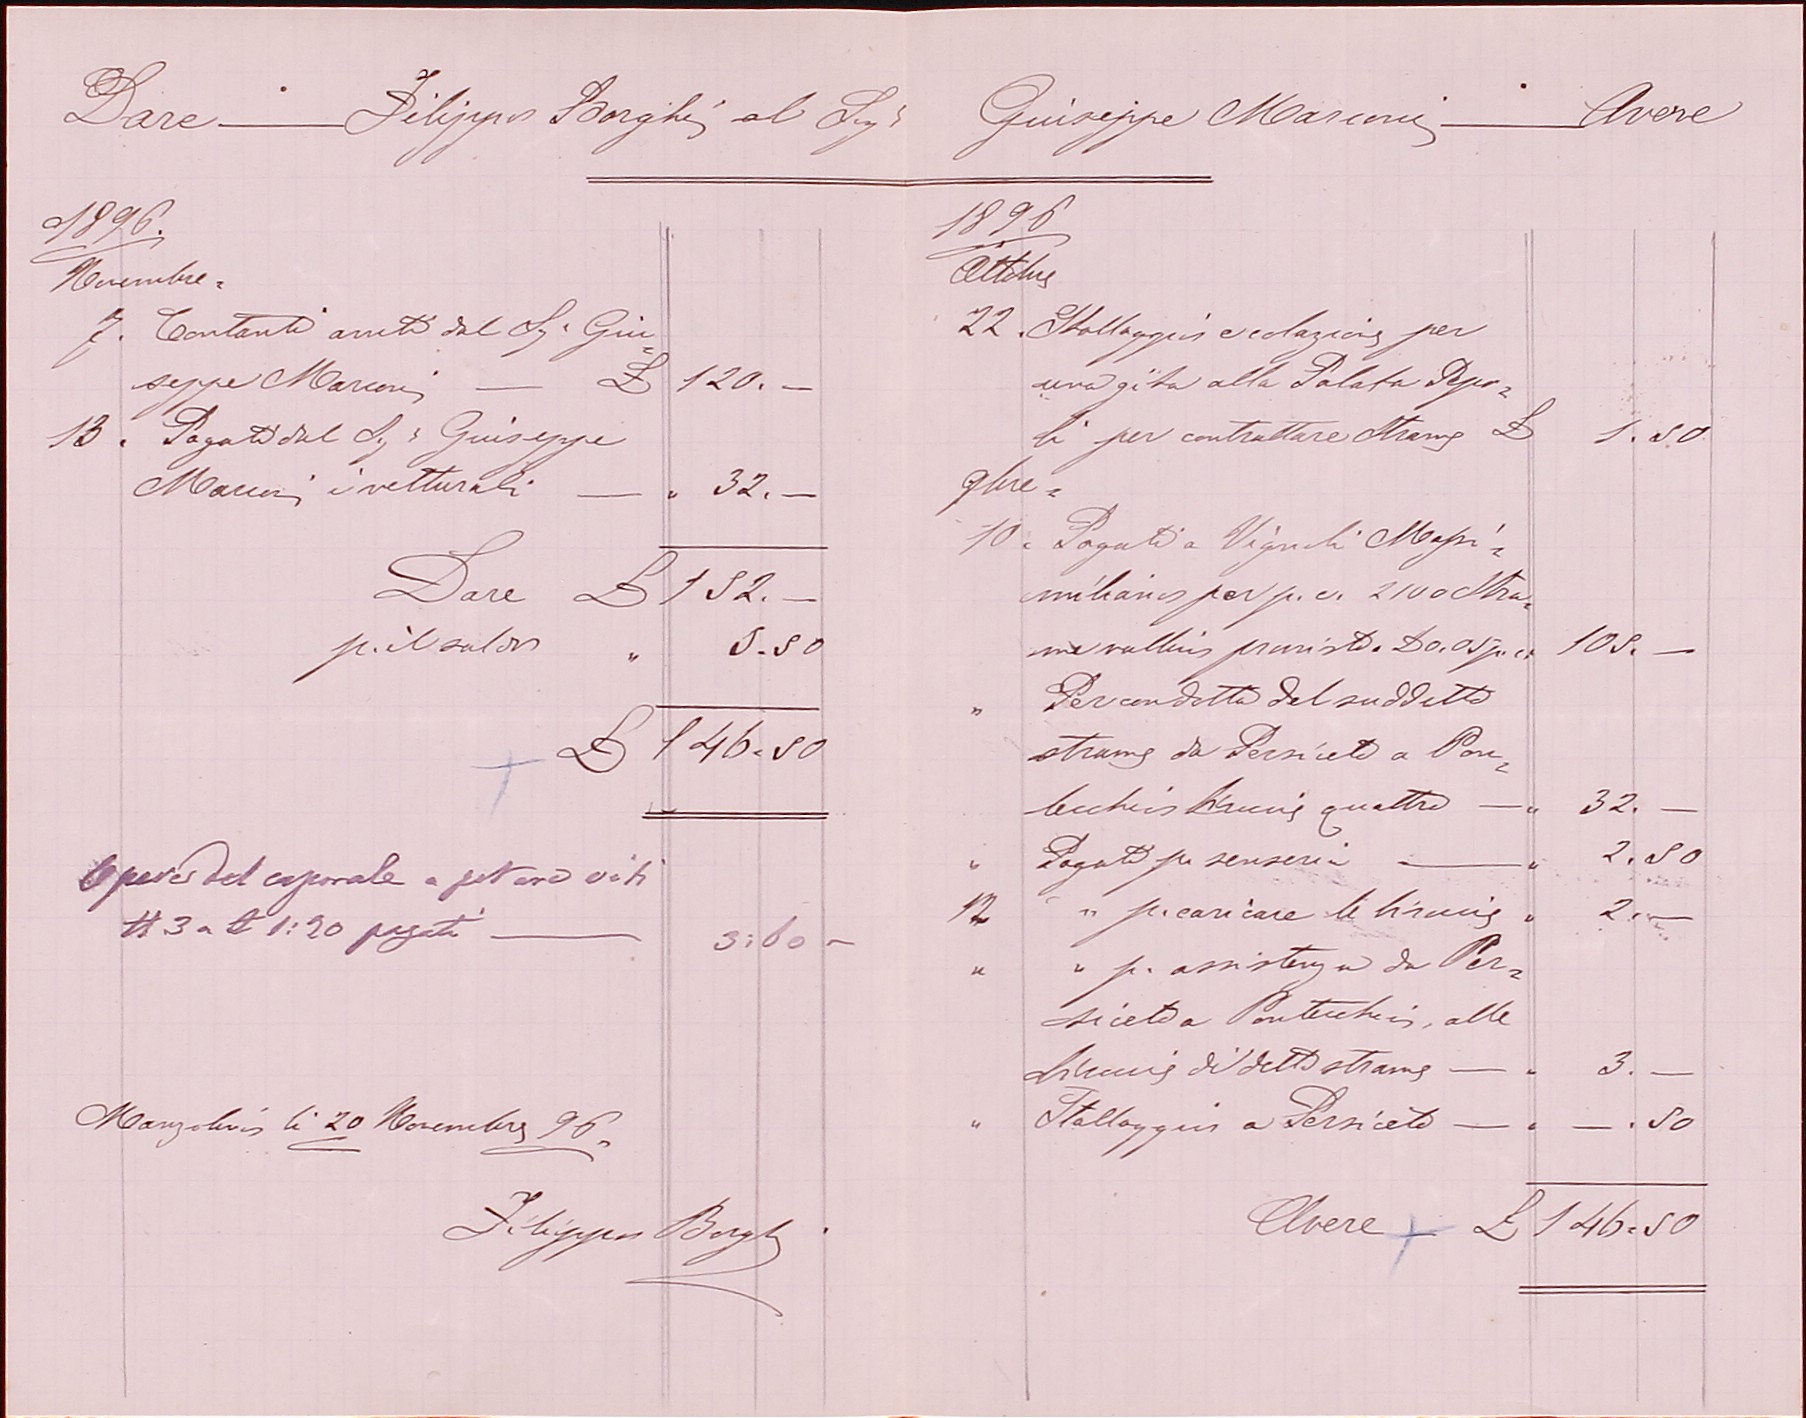 Dare — Filippo Borghi al Sigr Giuseppe Marconi — Avere
1896.
Novembre =
7. Contanti avuti dal Sigr Giu=
seppe Marconi — £ 120. —
13 " Pagati dal Sigr Giuseppe
Marconi i vetturali — " 32. —
Dare £ 152. —
p. il saldo " 5.50
£ 146.50
Opere del caporale a potare viti
N 3 a £ 1:20 pagati — 3:60 —
Manzolino li 20 Novembre 96.
Filippo Borghi
1896
Ottobre
22. Stallaggio e colazione per
una gita alla Palata Pepo=
li per contrattare strame £ 1.50
9bre =
10 " Pagati a Vignoli Massi=
miliano per p. c. 2100 Stra=
me vallivo provisto a £0.05 p. c. 105. —
" Per condotta del suddetto
strame da Persiceto a Pon=
tecchio birocci quattro — " 32. —
" Pagati p. senseria — " 2.50
12 " p. caricare li birocci " 2. —
" " p. assistenza da Per=
siceto a Pontecchio, alle
birocci di detto strame — " 3. —
" Stallaggio a Persiceto — " — .50
Avere £ 146.50